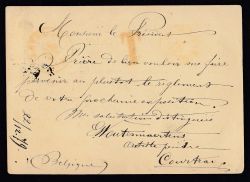 Monsieur le Président
Prière de bien vouloir me faire
parvenir au plustot le règlement
de votre prochaine exposition.
Mes salutations distinguées
artiste peintre
Courtrai
(Belgique)